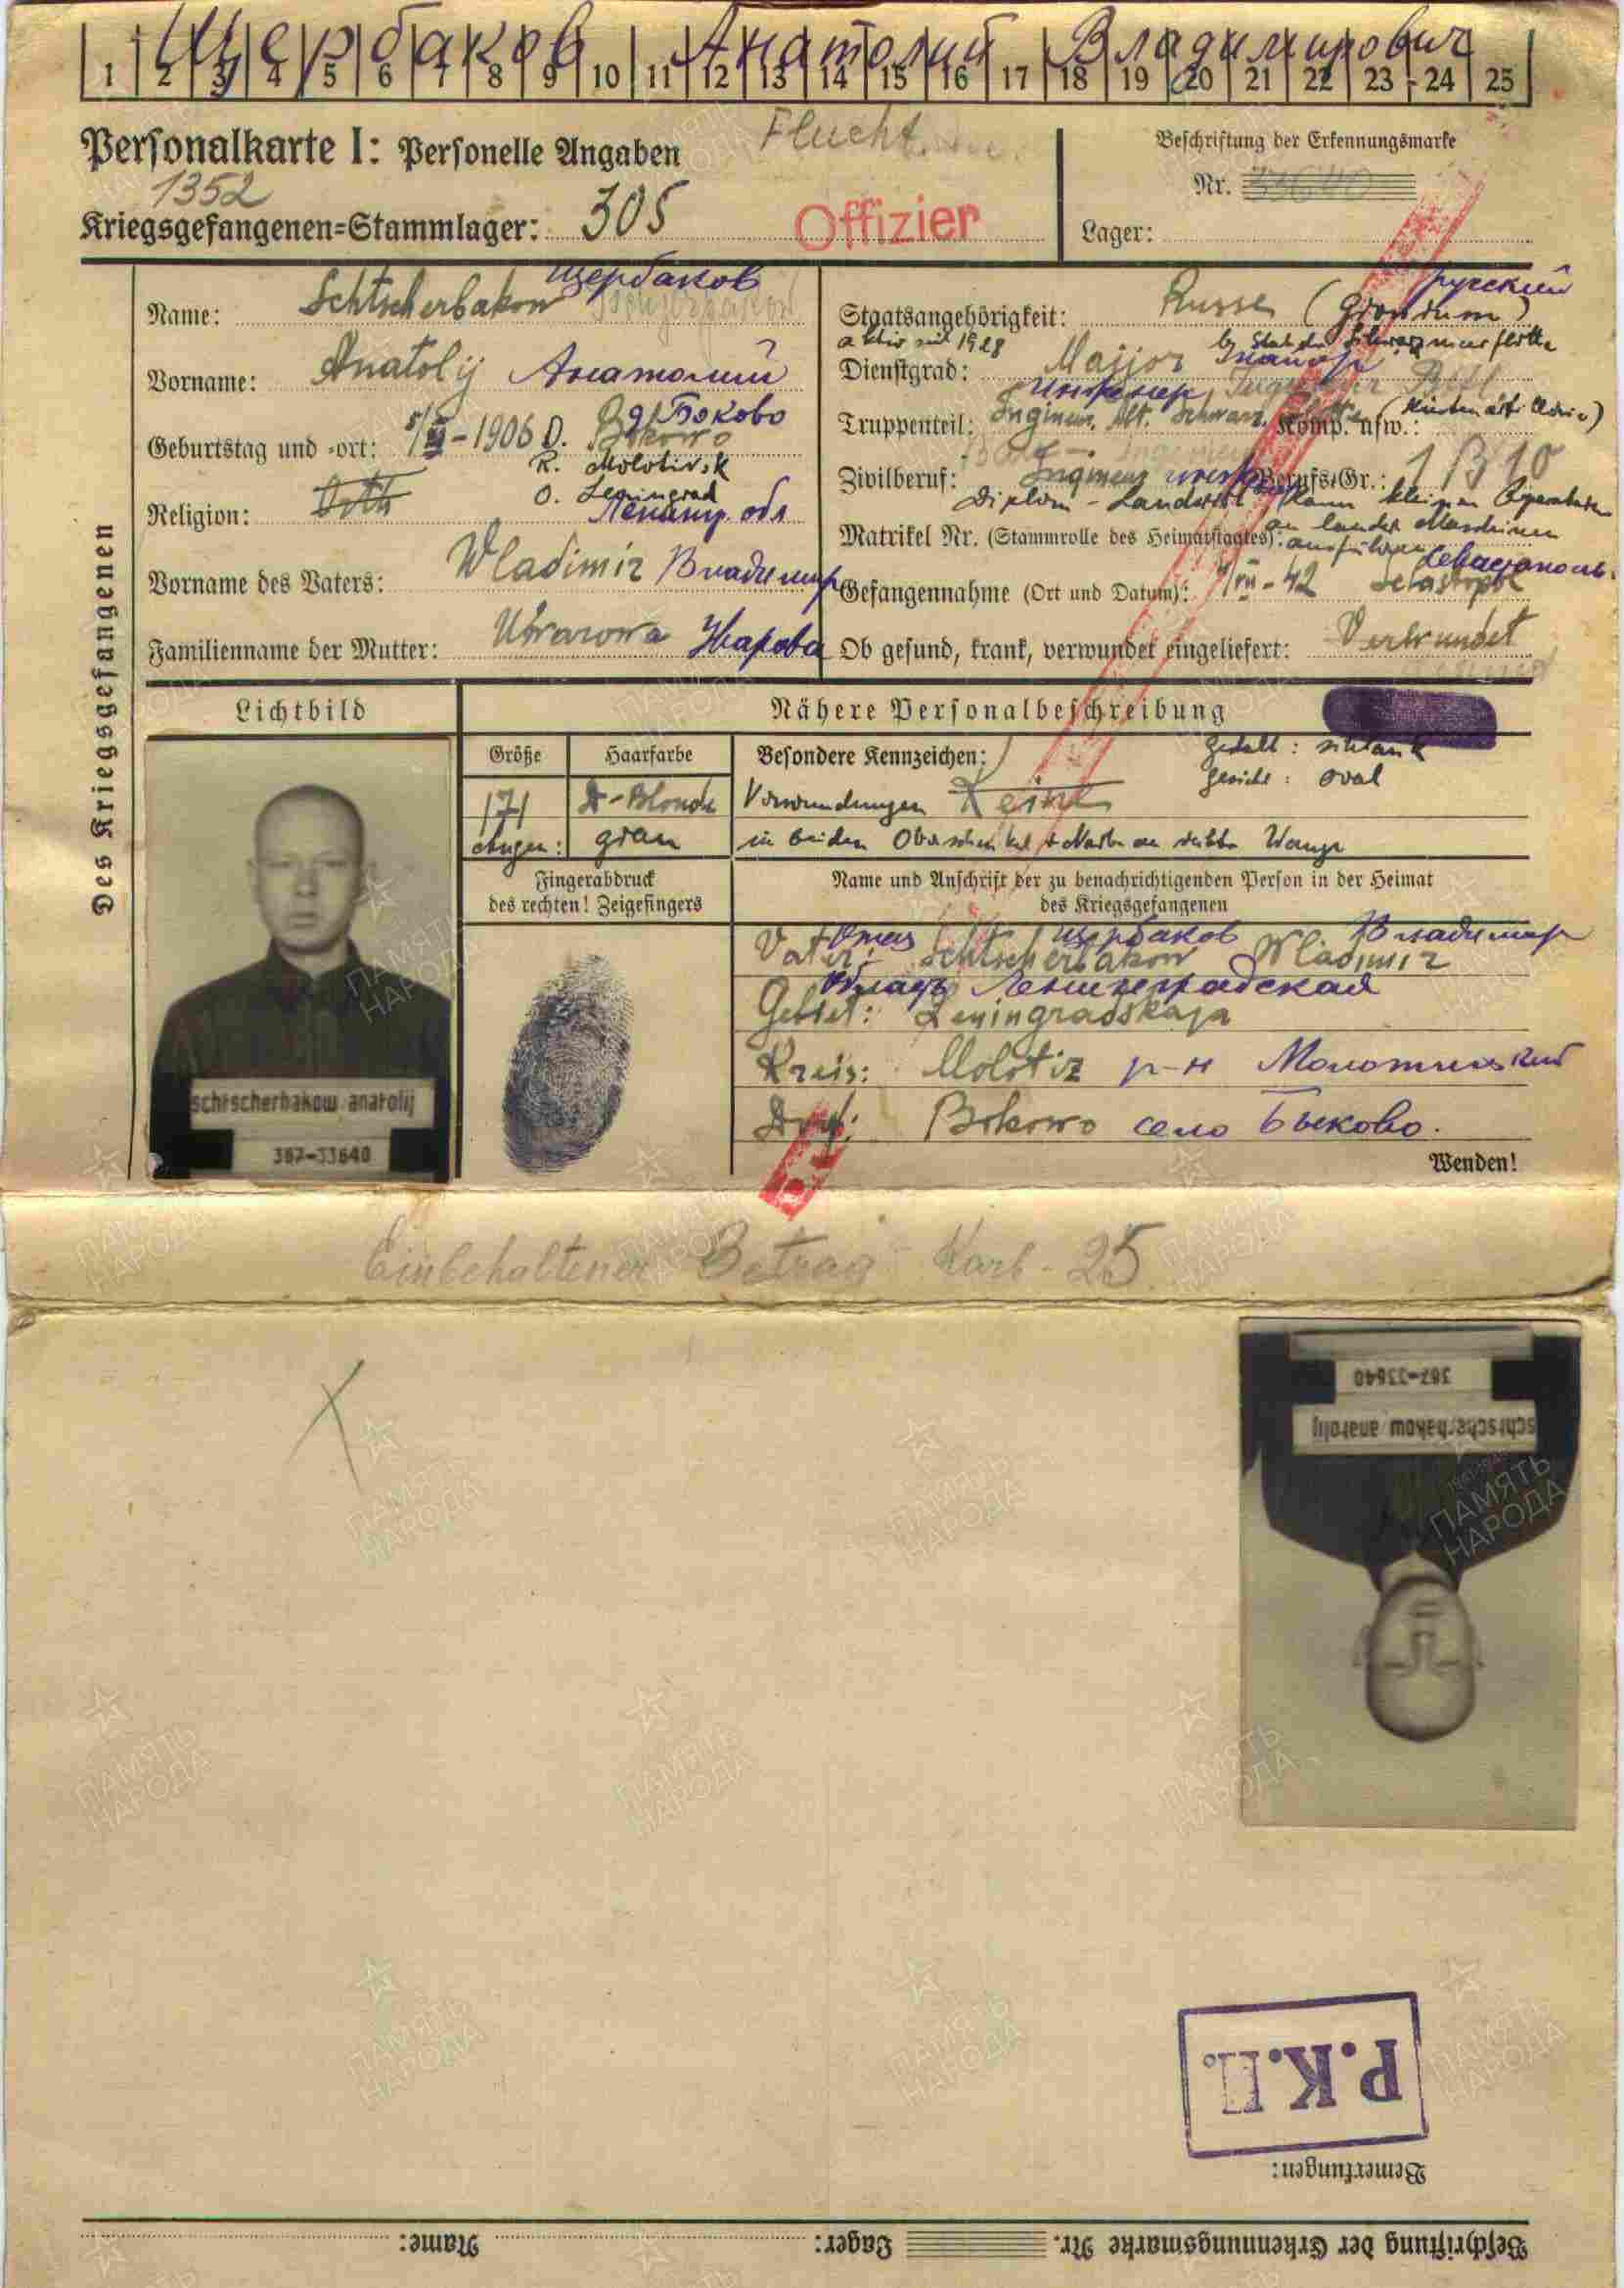 Щербаков Анатолий Владимирович
1 2 3 4 5 6 7 8 9 10 11 12 13 14 15 16 17 18 19 20 21 22 23 24 25
Flucht.
Personalkarte I: Personelle Angaben
Beschriftung der Erkennungsmarke
1352
Nr. 33640
Kriegsgefangenen-Stammlager: 305
Offizier
Lager:
Des Kriegsgefangenen
Name: Schtscherbakow Щербаков
Vorname: Anatolij Анатолий
Geburtstag und -ort: 1906 D. Bokowo д Боково
R. Molotivsk
O. Leningrad
Религion: Orth
Ленингр. обл
Vorname des Vaters: Wladimir Владимир
Familienname der Mutter: Uwarowa
Staatsangehörigkeit: Russe русский
aktiv seit 1928
Dienstgrad: Major
Truppenteil: Инженер Komp. usw.:
Zivilberuf: Berufs-Gr.: 1 B 10
Diplom -
Matrikel Nr. (Stammrolle des Heimatstaates): ausführen
Севастополь
Gefangennahme (Ort und Datum): VII-42
Ob gesund, krank, verwundet eingeliefert: Verwundet
Lichtbild
Nähere Personalbeschreibung
Größe
Haarfarbe
Besondere Kennzeichen:
Gestalt: schlank
Gesicht: oval
171
D-Blond
Verwundungen Keine
Augen: grau
in beiden Oberschenkel
Fingerabdruck
des rechten! Zeigefingers
Name und Anschrift der zu benachrichtigenden Person in der Heimat
des Kriegsgefangenen
Отец Щербаков Владимир
Vater: Schtscherbakow Wladimir
Ленинградская
Gebiet: Leningradskaja
Kreis: Molotiz р-н
Dorf: Bokowo село Быково.
schtscherbakow anatolij
367-33640
Wenden!
Einbehaltener Betrag Karb - 25
367-33640
schtscherbakow anatolij
Р.К.П.
Bemerkungen:
Beschriftung der Erkennungsmarke Nr. Lager: Name:
ПАМЯТЬ НАРОДА